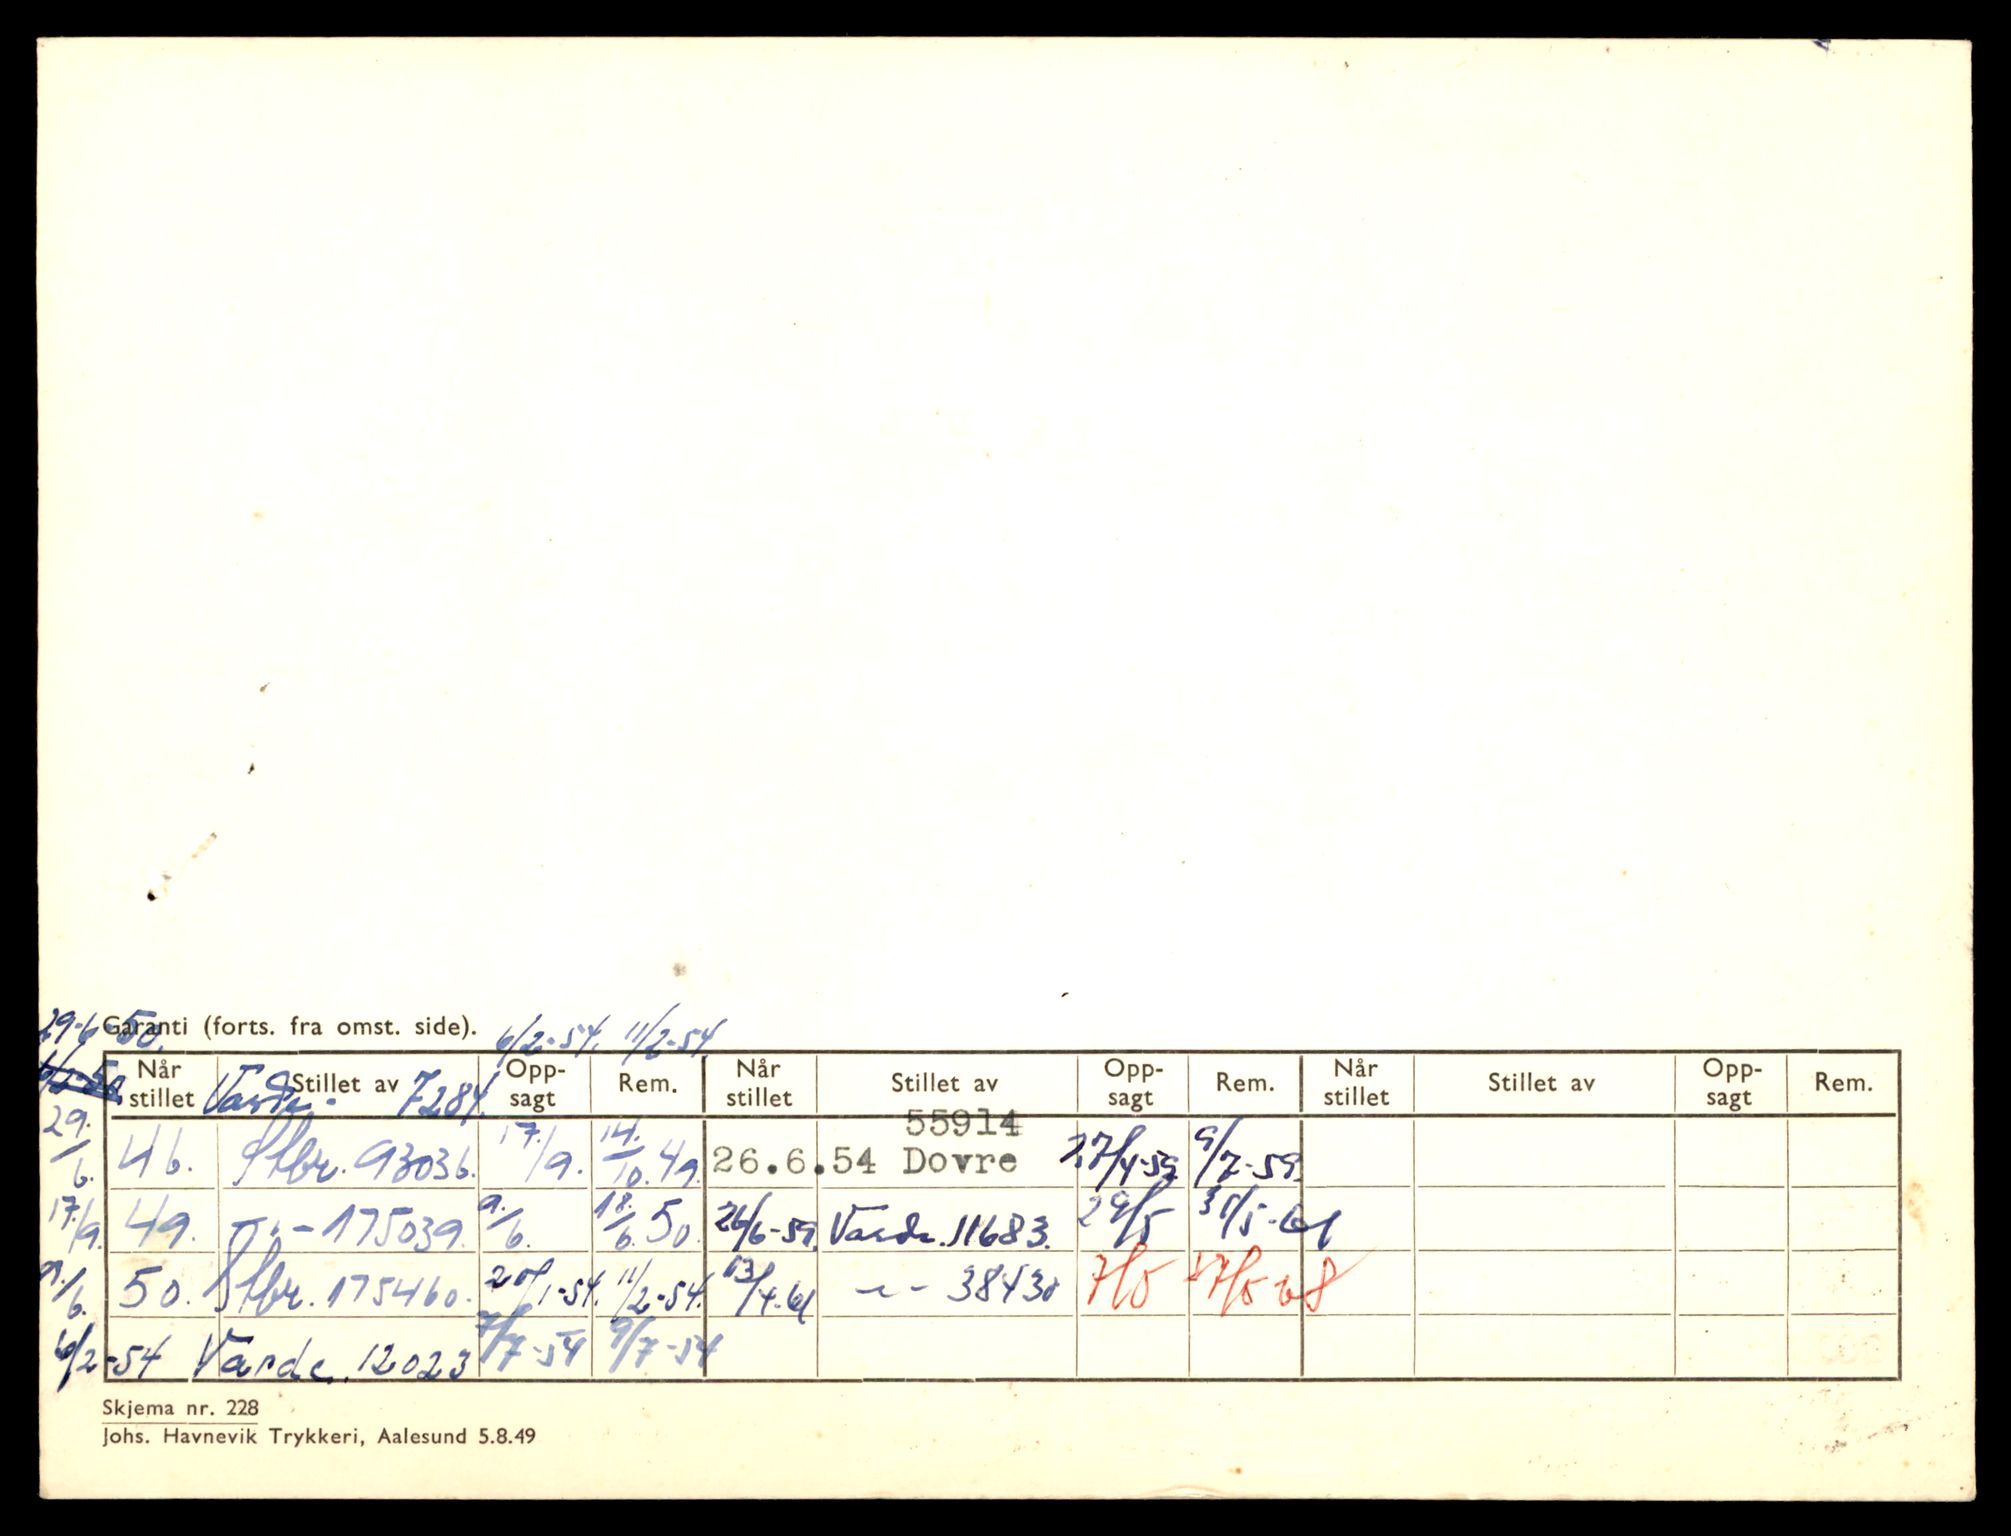 Garanti (forts. fra omst. side).
29-6-50. 6/2-54. 11/2-54
Når stillet Stillet av Opp-sagt Rem. Når stillet Stillet av Opp-sagt Rem. Når stillet Stillet av Opp-sagt Rem.
Varde - 7284.
55914
29./6. 46. Stbr. 93036. 17./9. 14./10. 49. 26.6.54 Dovre 27/4-59. 9/7-59.
17./9. 49. - 175039. 9./6. 18./6. 50. 26/6-59. Varde. 11683. 29/5 31/5-61
9./6. 50. Stbr. 175460. 20/1-54. 11/2-54. 13/4-61 -"- 38430 7/5 /5 68
6/2-54 Varde. 12023 7/7-54 9/7-54
Skjema nr. 228
Johs. Havnevik Trykkeri, Aalesund 5.8.49